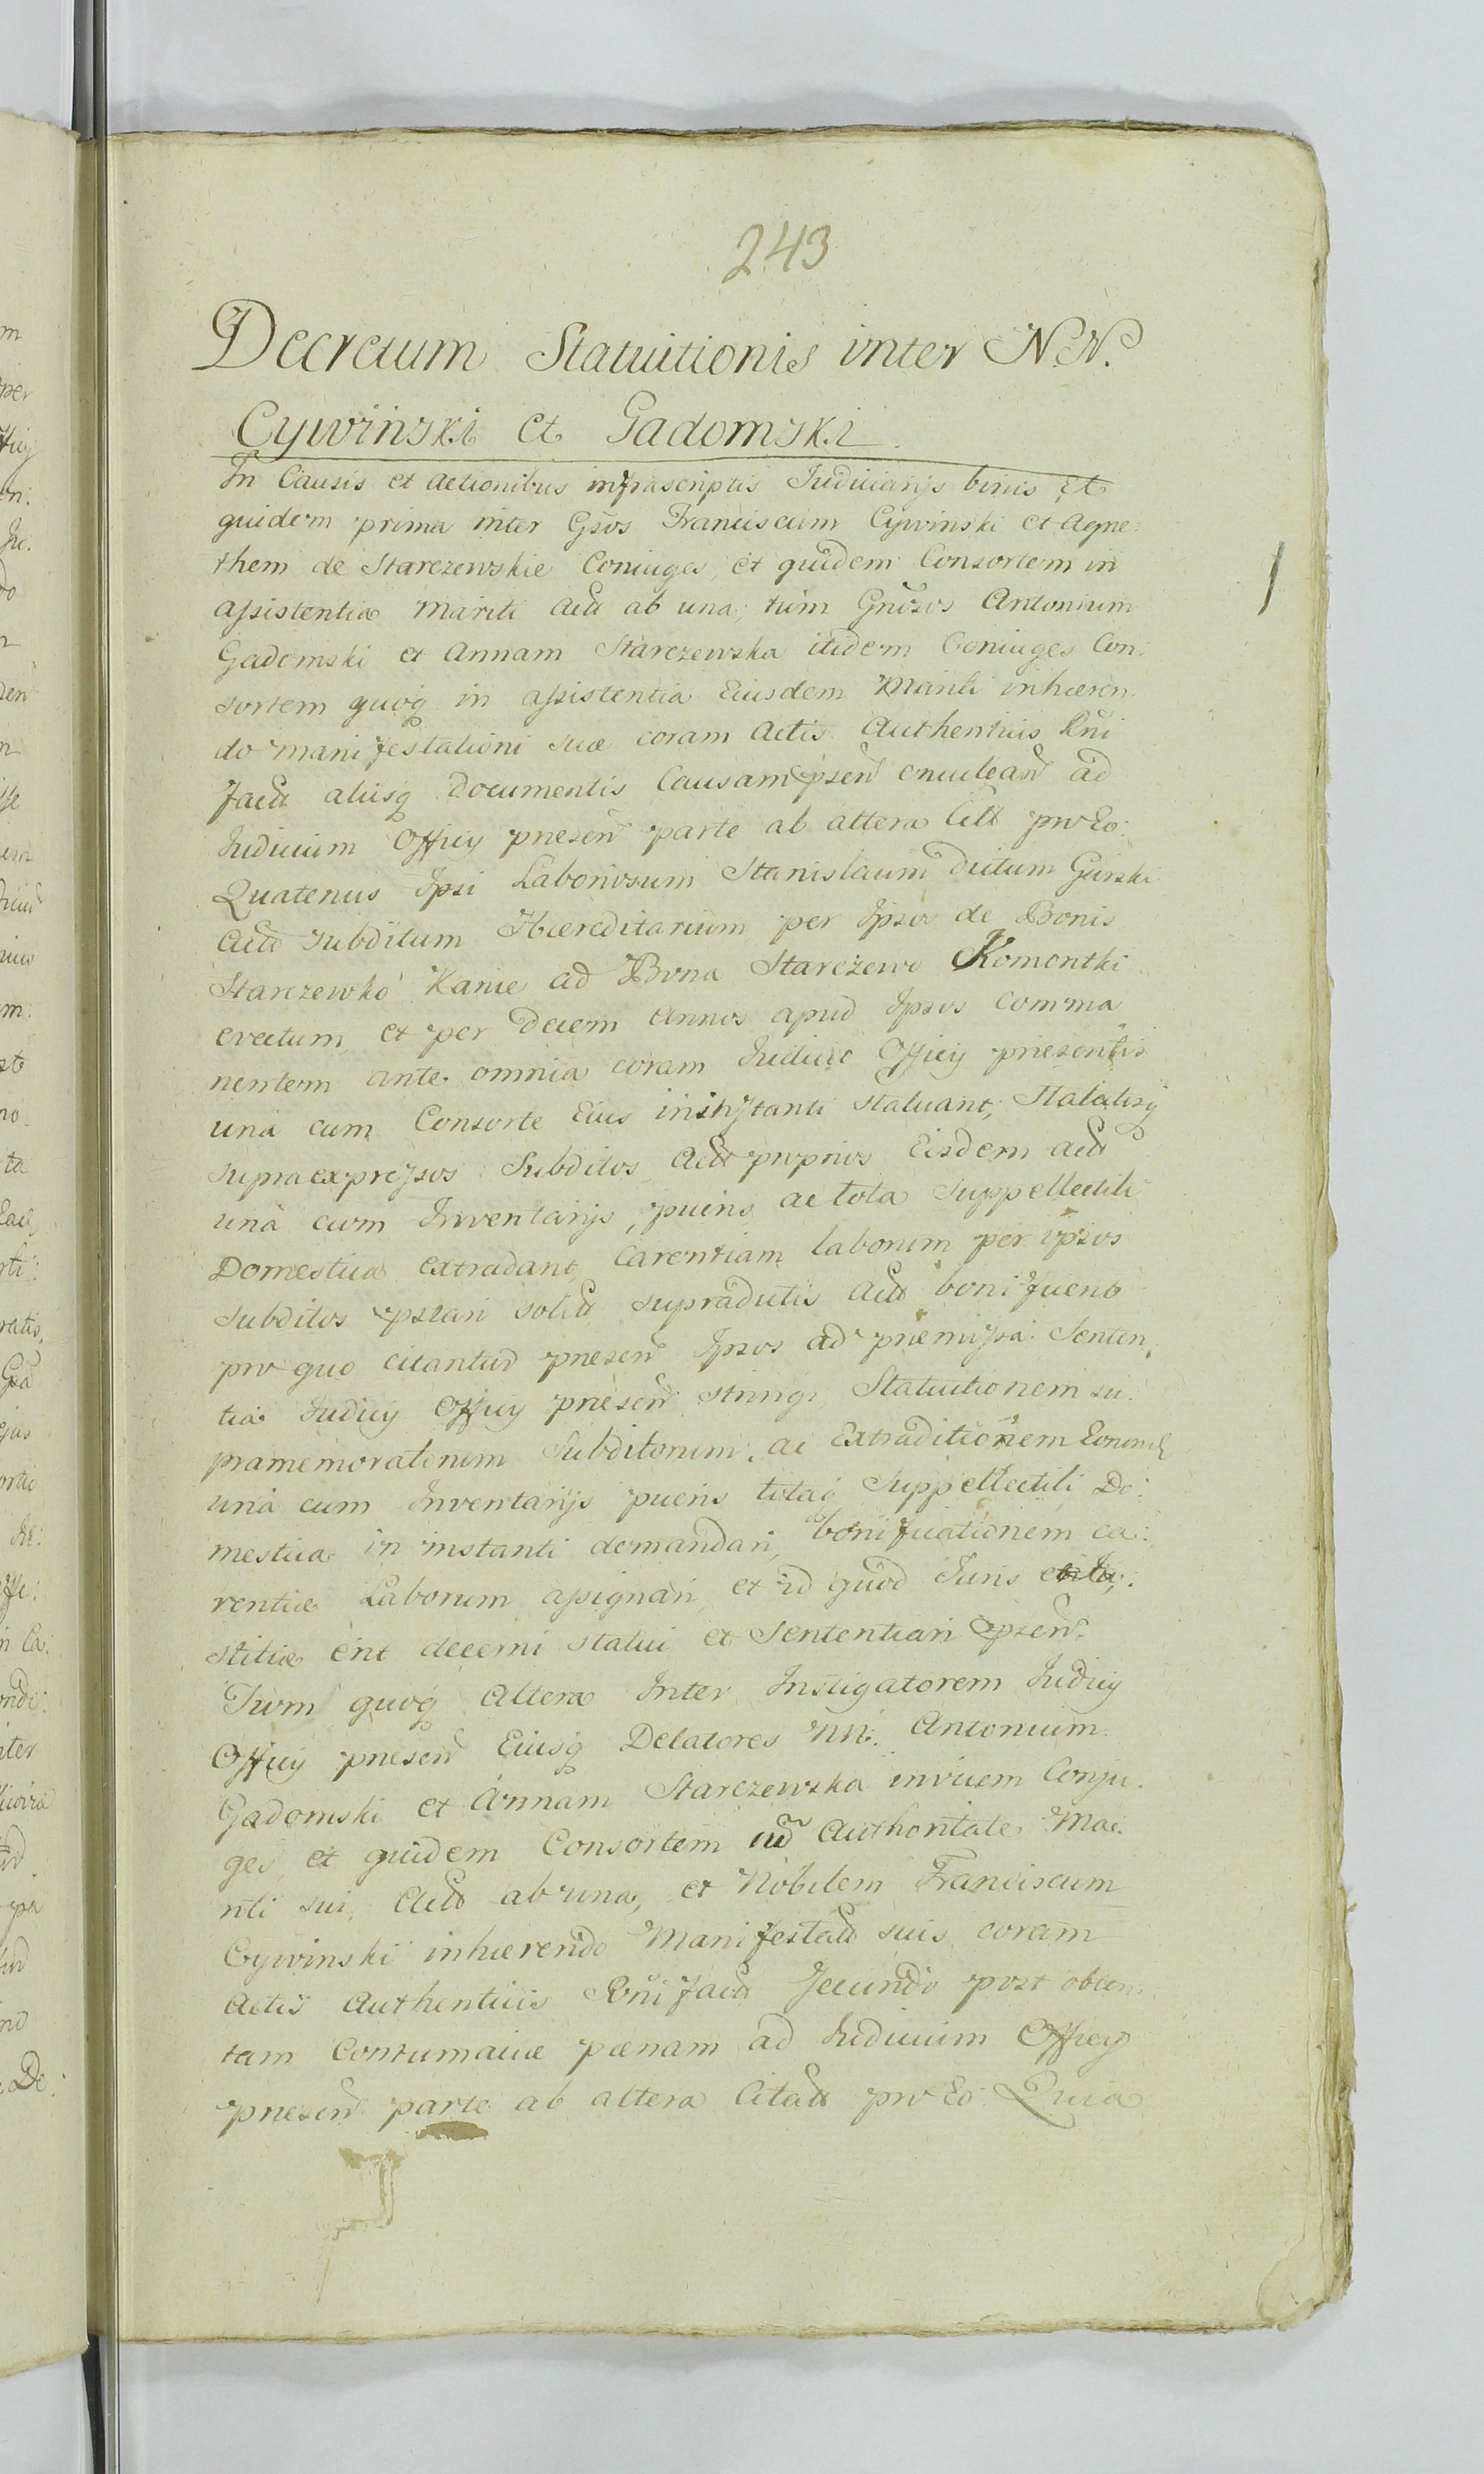 243
Decretum Statuitionis inter N.N.
Cywinski et Gadomski
In Causis et Actionibus infrascriptis Judiciarijs binis Et
quidem prima inter Gsos Franciscum Cywinski et Agne:
them de Starczewskie Coniuges, et quidem Consortem in
assistentia Mariti Actt ab una, tum Gnosos Antonium
Gadomski et Annam Starczewska itidem Coniuges Con:
sortem quoq in assistentia Eiusdem Mariti inhæren:
do manifestationi suæ coram Actis Authenticis Rni
factt aliisq Documentis Causam psen enuclean ad
Judicium Officy præsen parte ab altera Citt pro Eo:
Quatenus Ipsi Laboriosum Stanislaum dictum Gurski
Actt subditum Hæreditarium per Ipsos de Bonis
Starczewko Kanie ad Bona Starczewo Komontki
evectum, et per decem Annos apud Ipsos comma
nentem ante omnia coram Judicio Officy præsentis
una cum Consorte Eius in instanti statuant, Statutosq
supraexpressos Subditos Actt proprios Eisdem Actt
una cum Inventarijs, pueris ac tota Suppellectili
Domestica extradant, Carentiam laborum per ipsos
subditos pstari solitt supradictis Actt bonificent
pro quo citantur præsen Ipsos ad præmissa Senten
tia Judicy Officy præsen stringi, Statuitionem su:
pramemoratorum Subditorum, ac Extraditionem Eorund
una cum Inventarijs pueris totaq Suppellectili Do:
mestica in instanti demandari, bonificationem ca:
rentiæ Laborum assignari, et id quod Juris et Ju:
stitiæ erit decerni statui et Sententiari psen.
Tum quoq Altera Inter Instigatorem Judicy
Officy præsen Eiusq Delatores NN. Antonium
Gadomski et Annam Starczewska invicem Conju:
ges, et quidem Consortem cu Authoritate Ma:
riti sui, Actt ab una, et Nobilem Franciscum
Cywinski inhærendo Manifestatt suis coram
Actis Authenticis Rni factt Secundo post obten:
tam Contumaciæ pænam ad Judicium Officy
præsen parte ab altera Citatt pro Eo: Quia